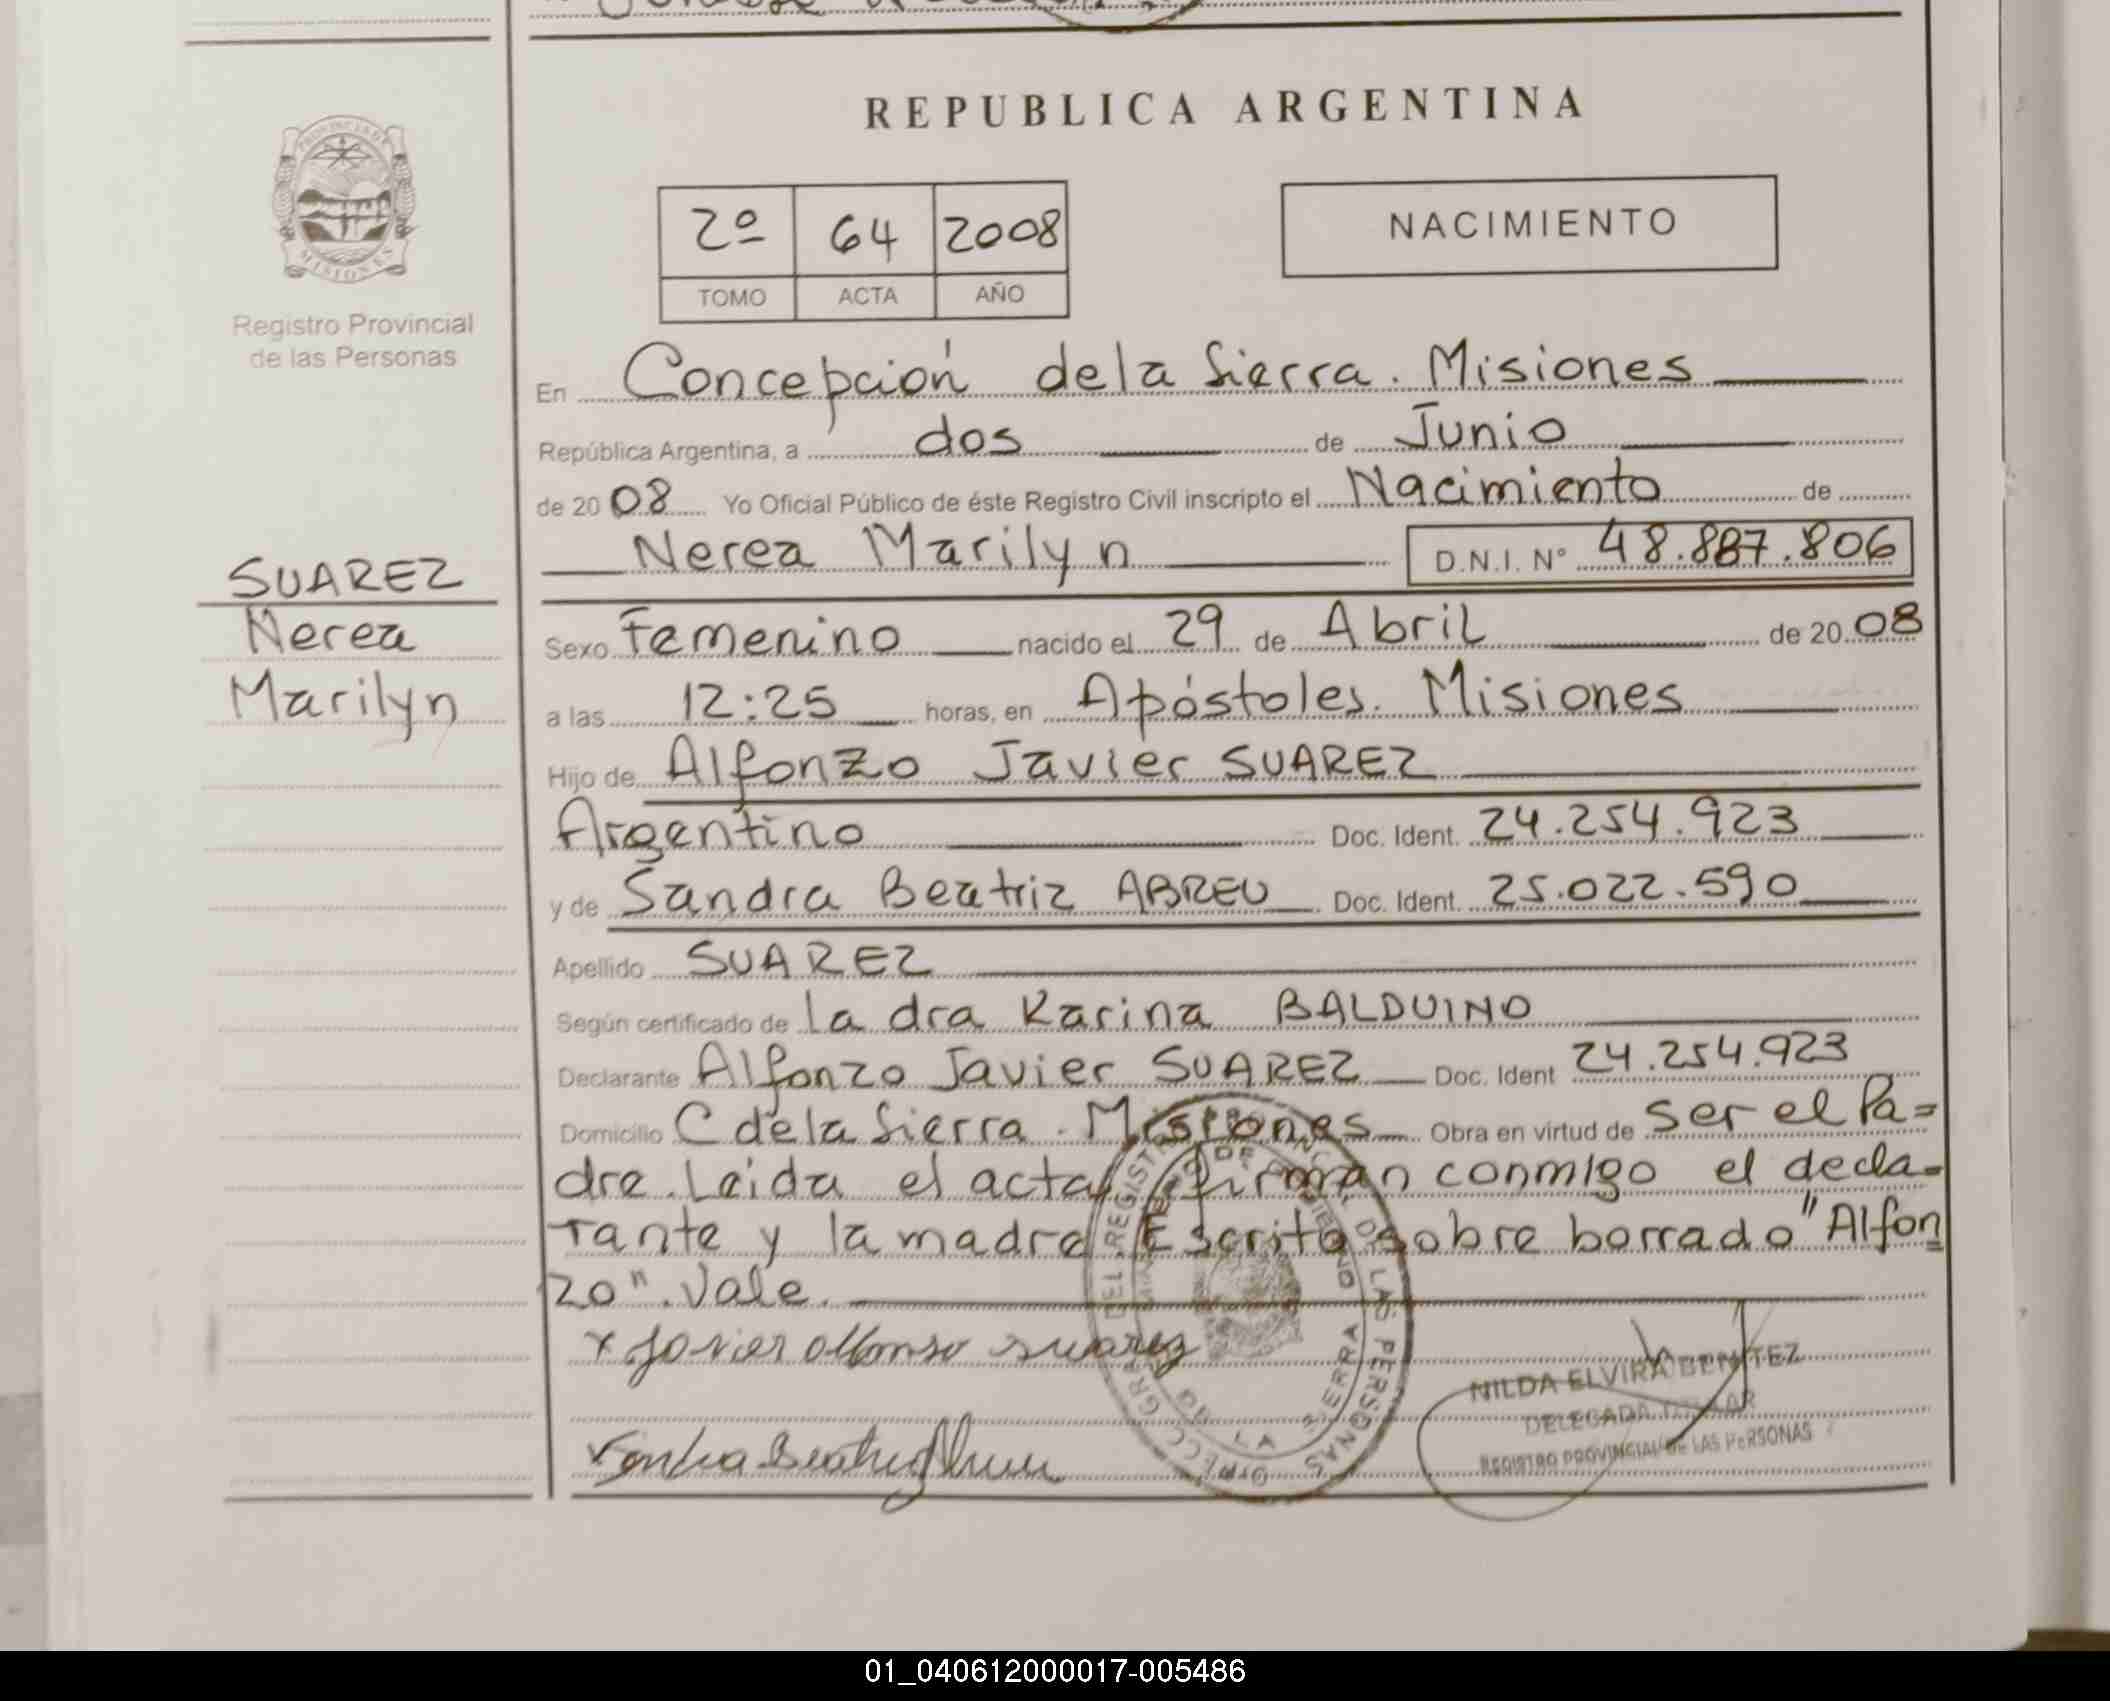 REPUBLICA ARGENTINA
PROVINCIA DE
MISIONES
Registro Provincial
de las Personas
2º 64 2008
TOMO ACTA AÑO
NACIMIENTO
En Concepción de la Sierra. Misiones
República Argentina, a dos de Junio
de 2008 Yo Oficial Público de éste Registro Civil inscripto el Nacimiento de
Nerea Marilyn D.N.I. Nº 48.887.806
SUAREZ
Nerea
Marilyn
Sexo Femenino nacido el 29 de Abril de 2008
a las 12:25 horas, en Apóstoles. Misiones
Hijo de Alfonzo Javier SUAREZ
Argentino Doc. Ident. 24.254.923
y de Sandra Beatriz ABREU Doc. Ident. 25.022.590
Apellido SUAREZ
Según certificado de la dra Karina BALDUINO
Declarante Alfonzo Javier SUAREZ Doc. Ident 24.254.923
Domicilio C de la Sierra. Misiones Obra en virtud de ser el Pa=
dre. Leida el acta firman conmigo el decla=
rante y la madre Escrito sobre borrado "Alfon
zo". Vale.
x Javier Alfonso Suarez
NILDA ELVIRA BENITEZ
DELEGADA TITULAR
REGISTRO PROVINCIAL DE LAS PERSONAS
01_040612000017-005486